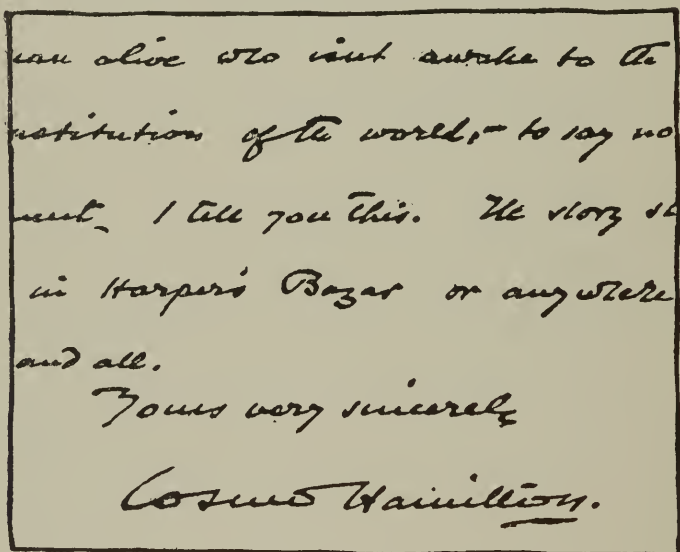 man alive who isnt awake to the
nstitution of the world,- to say no
ment, I tell you this. The story st
in Harper's Bazar or anywhere
and all.
Yours very sincerely
Cosmo Hamilton.